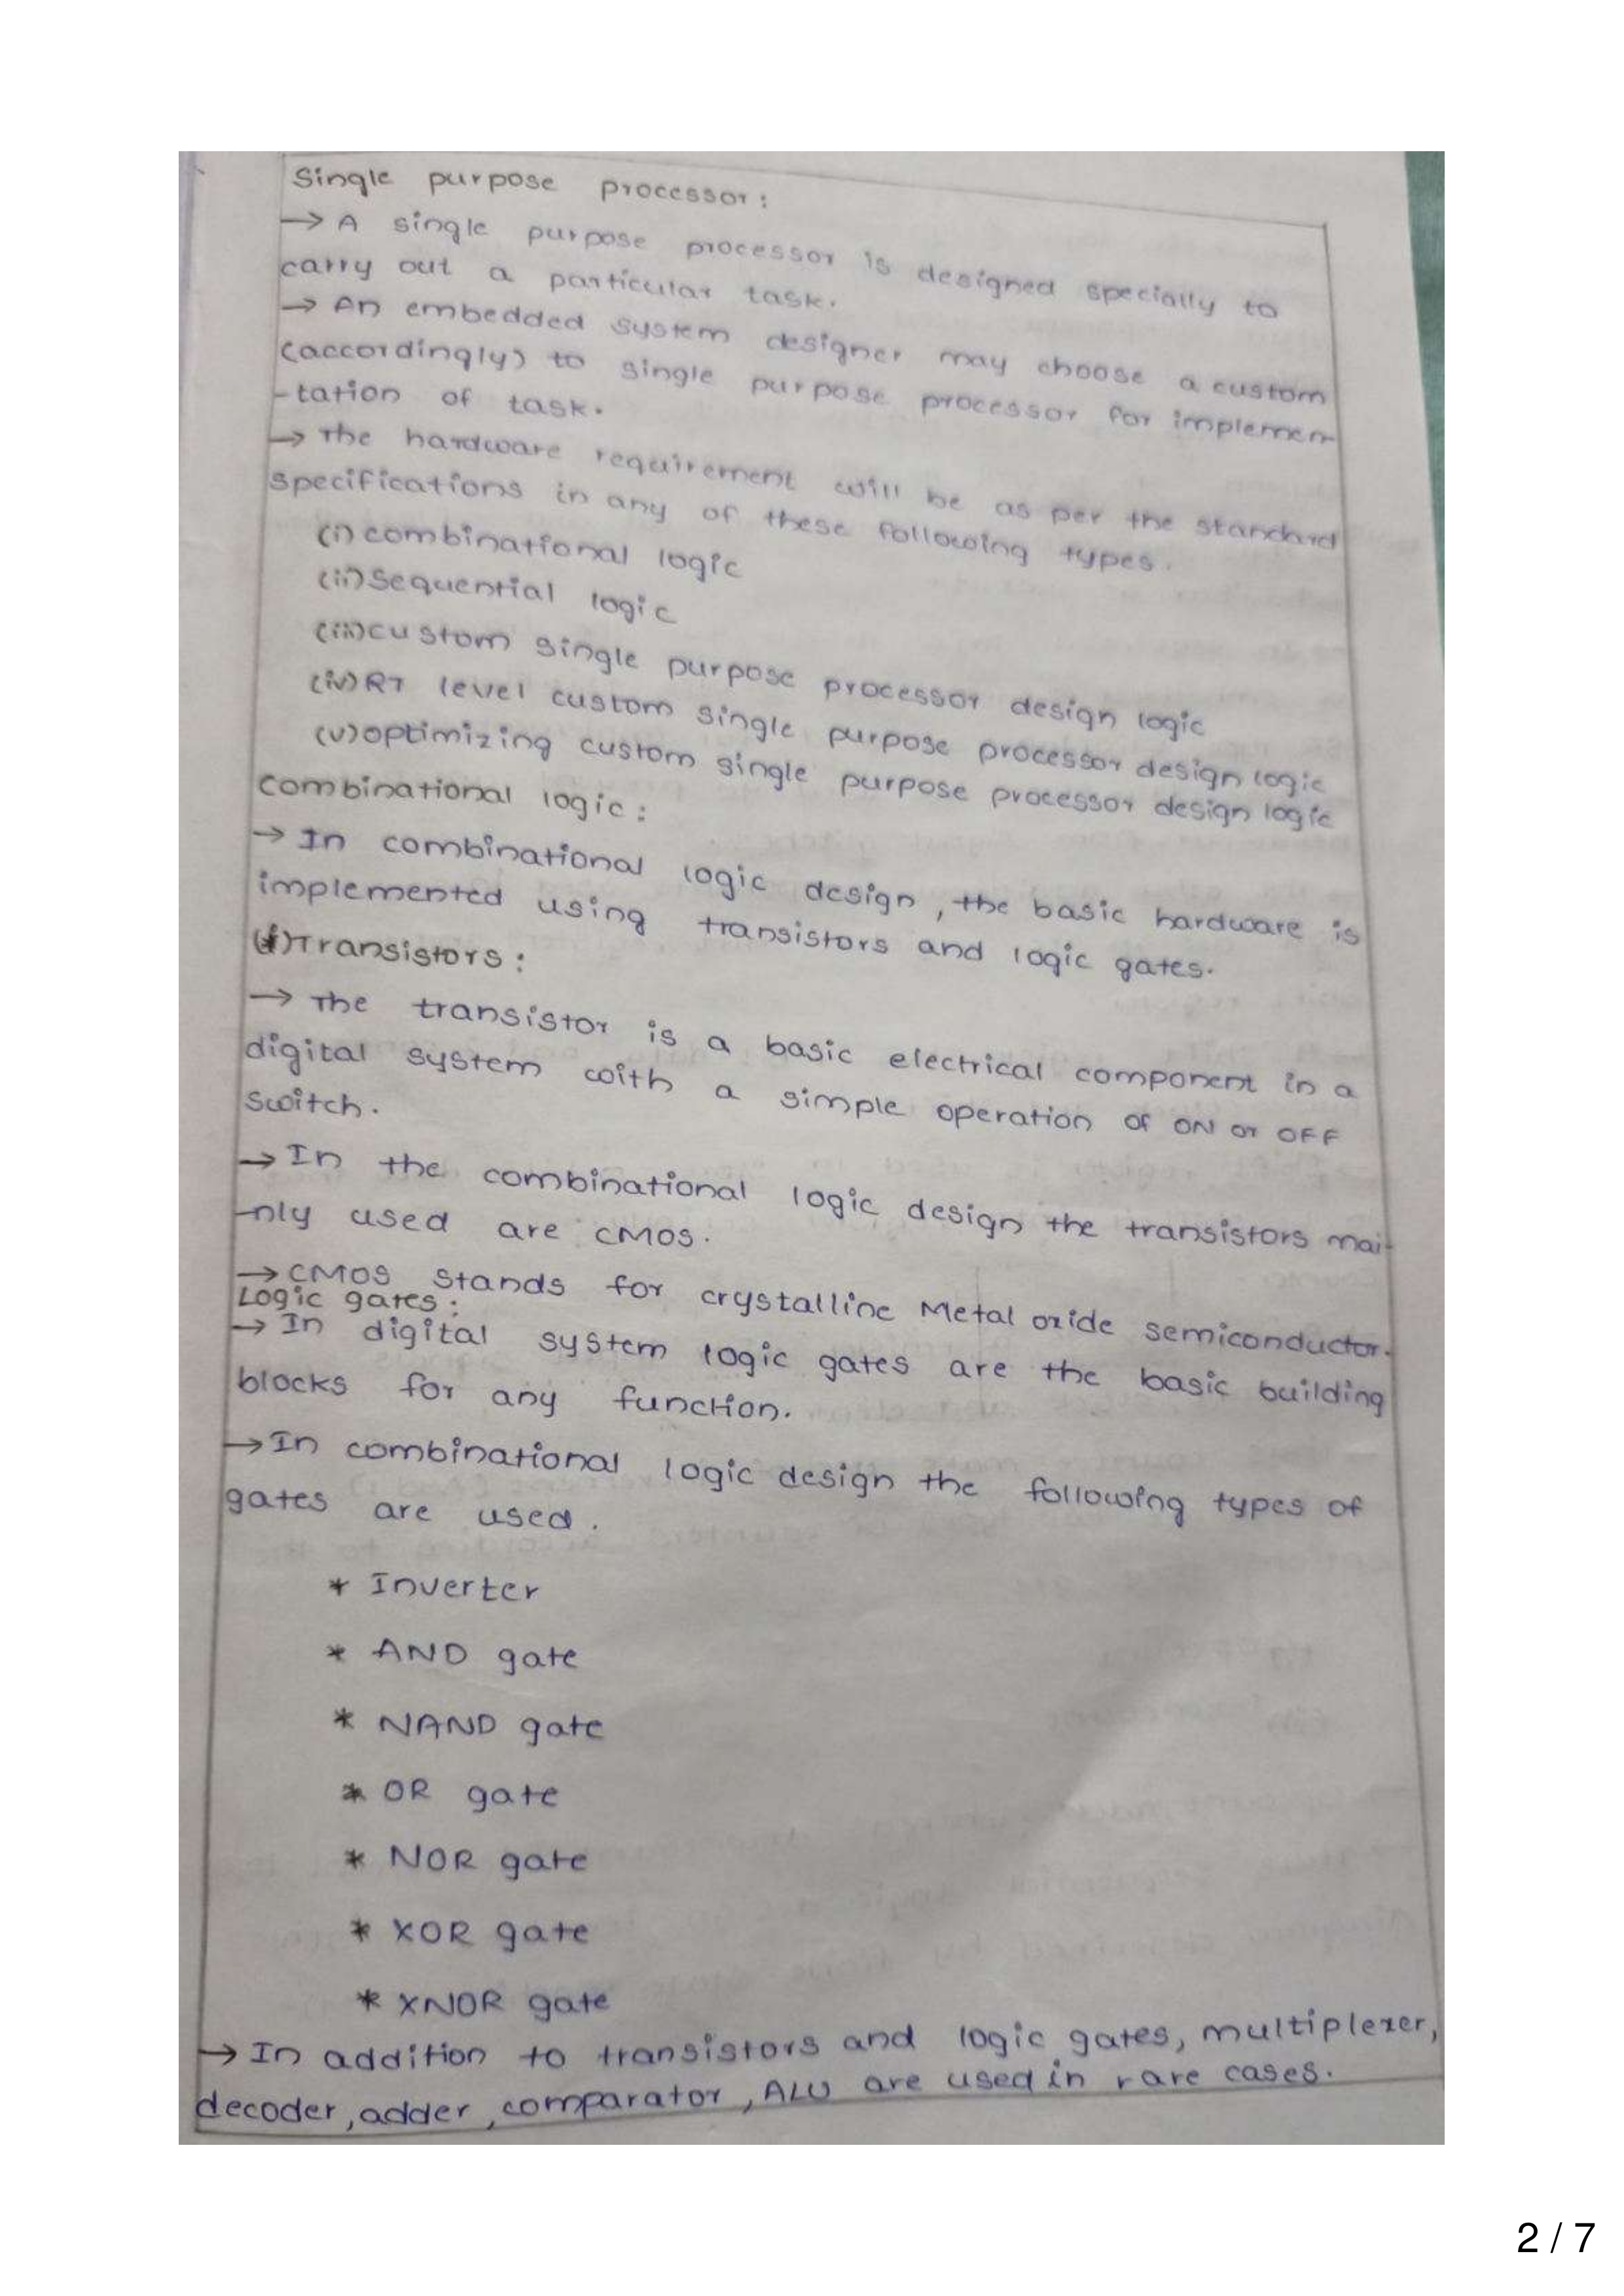 Single purpose processor:
→ A single purpose processor is designed specially to
carry out a particular task.
→ An embedded system designer may choose a custom
(accordingly) to single purpose processor for implemen-
-tation of task.
→ The hardware requirement will be as per the standard
specifications in any of these following types.
(i) combinational logic
(ii) Sequential logic
(iii) custom single purpose processor design logic
(iv) RT level custom single purpose processor design logic
(v) optimizing custom single purpose processor design logic
Combinational logic:
→ In combinational logic design, the basic hardware is
implemented using transistors and logic gates.
(i) Transistors:
→ The transistor is a basic electrical component in a
digital system with a simple operation of ON or OFF
switch.
→ In the combinational logic design the transistors mai-
-nly used are CMOS.
→ CMOS stands for crystalline Metal oxide semiconductor.
Logic gates:
→ In digital system logic gates are the basic building
blocks for any function.
→ In combinational logic design the following types of
gates are used.
* Inverter
* AND gate
* NAND gate
* OR gate
* NOR gate
* XOR gate
* XNOR gate
→ In addition to transistors and logic gates, multiplexer,
decoder, adder, comparator, ALU are used in rare cases.
2 / 7